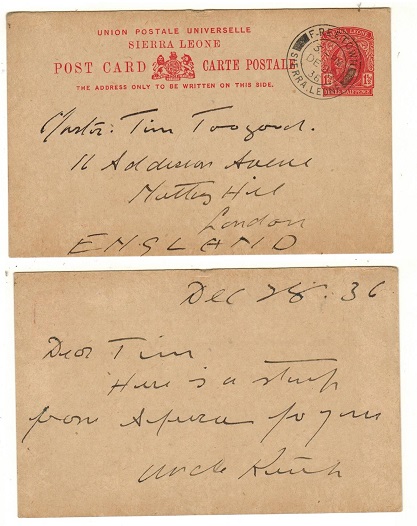 UNION POSTALE UNIVERSELLE
SIERRA LEONE
POST CARD CARTE POSTALE
THE ADDRESS ONLY TO BE WRITTEN ON THIS SIDE.
FREETOWN
DE
36
SIERRA LEONE
Master Tim Toogood.
16 Addison Avenue
Hill
London
ENGLAND
Dec 28. 36
Dear Tim
Here is a stamp
from Africa for you
Uncle Keith